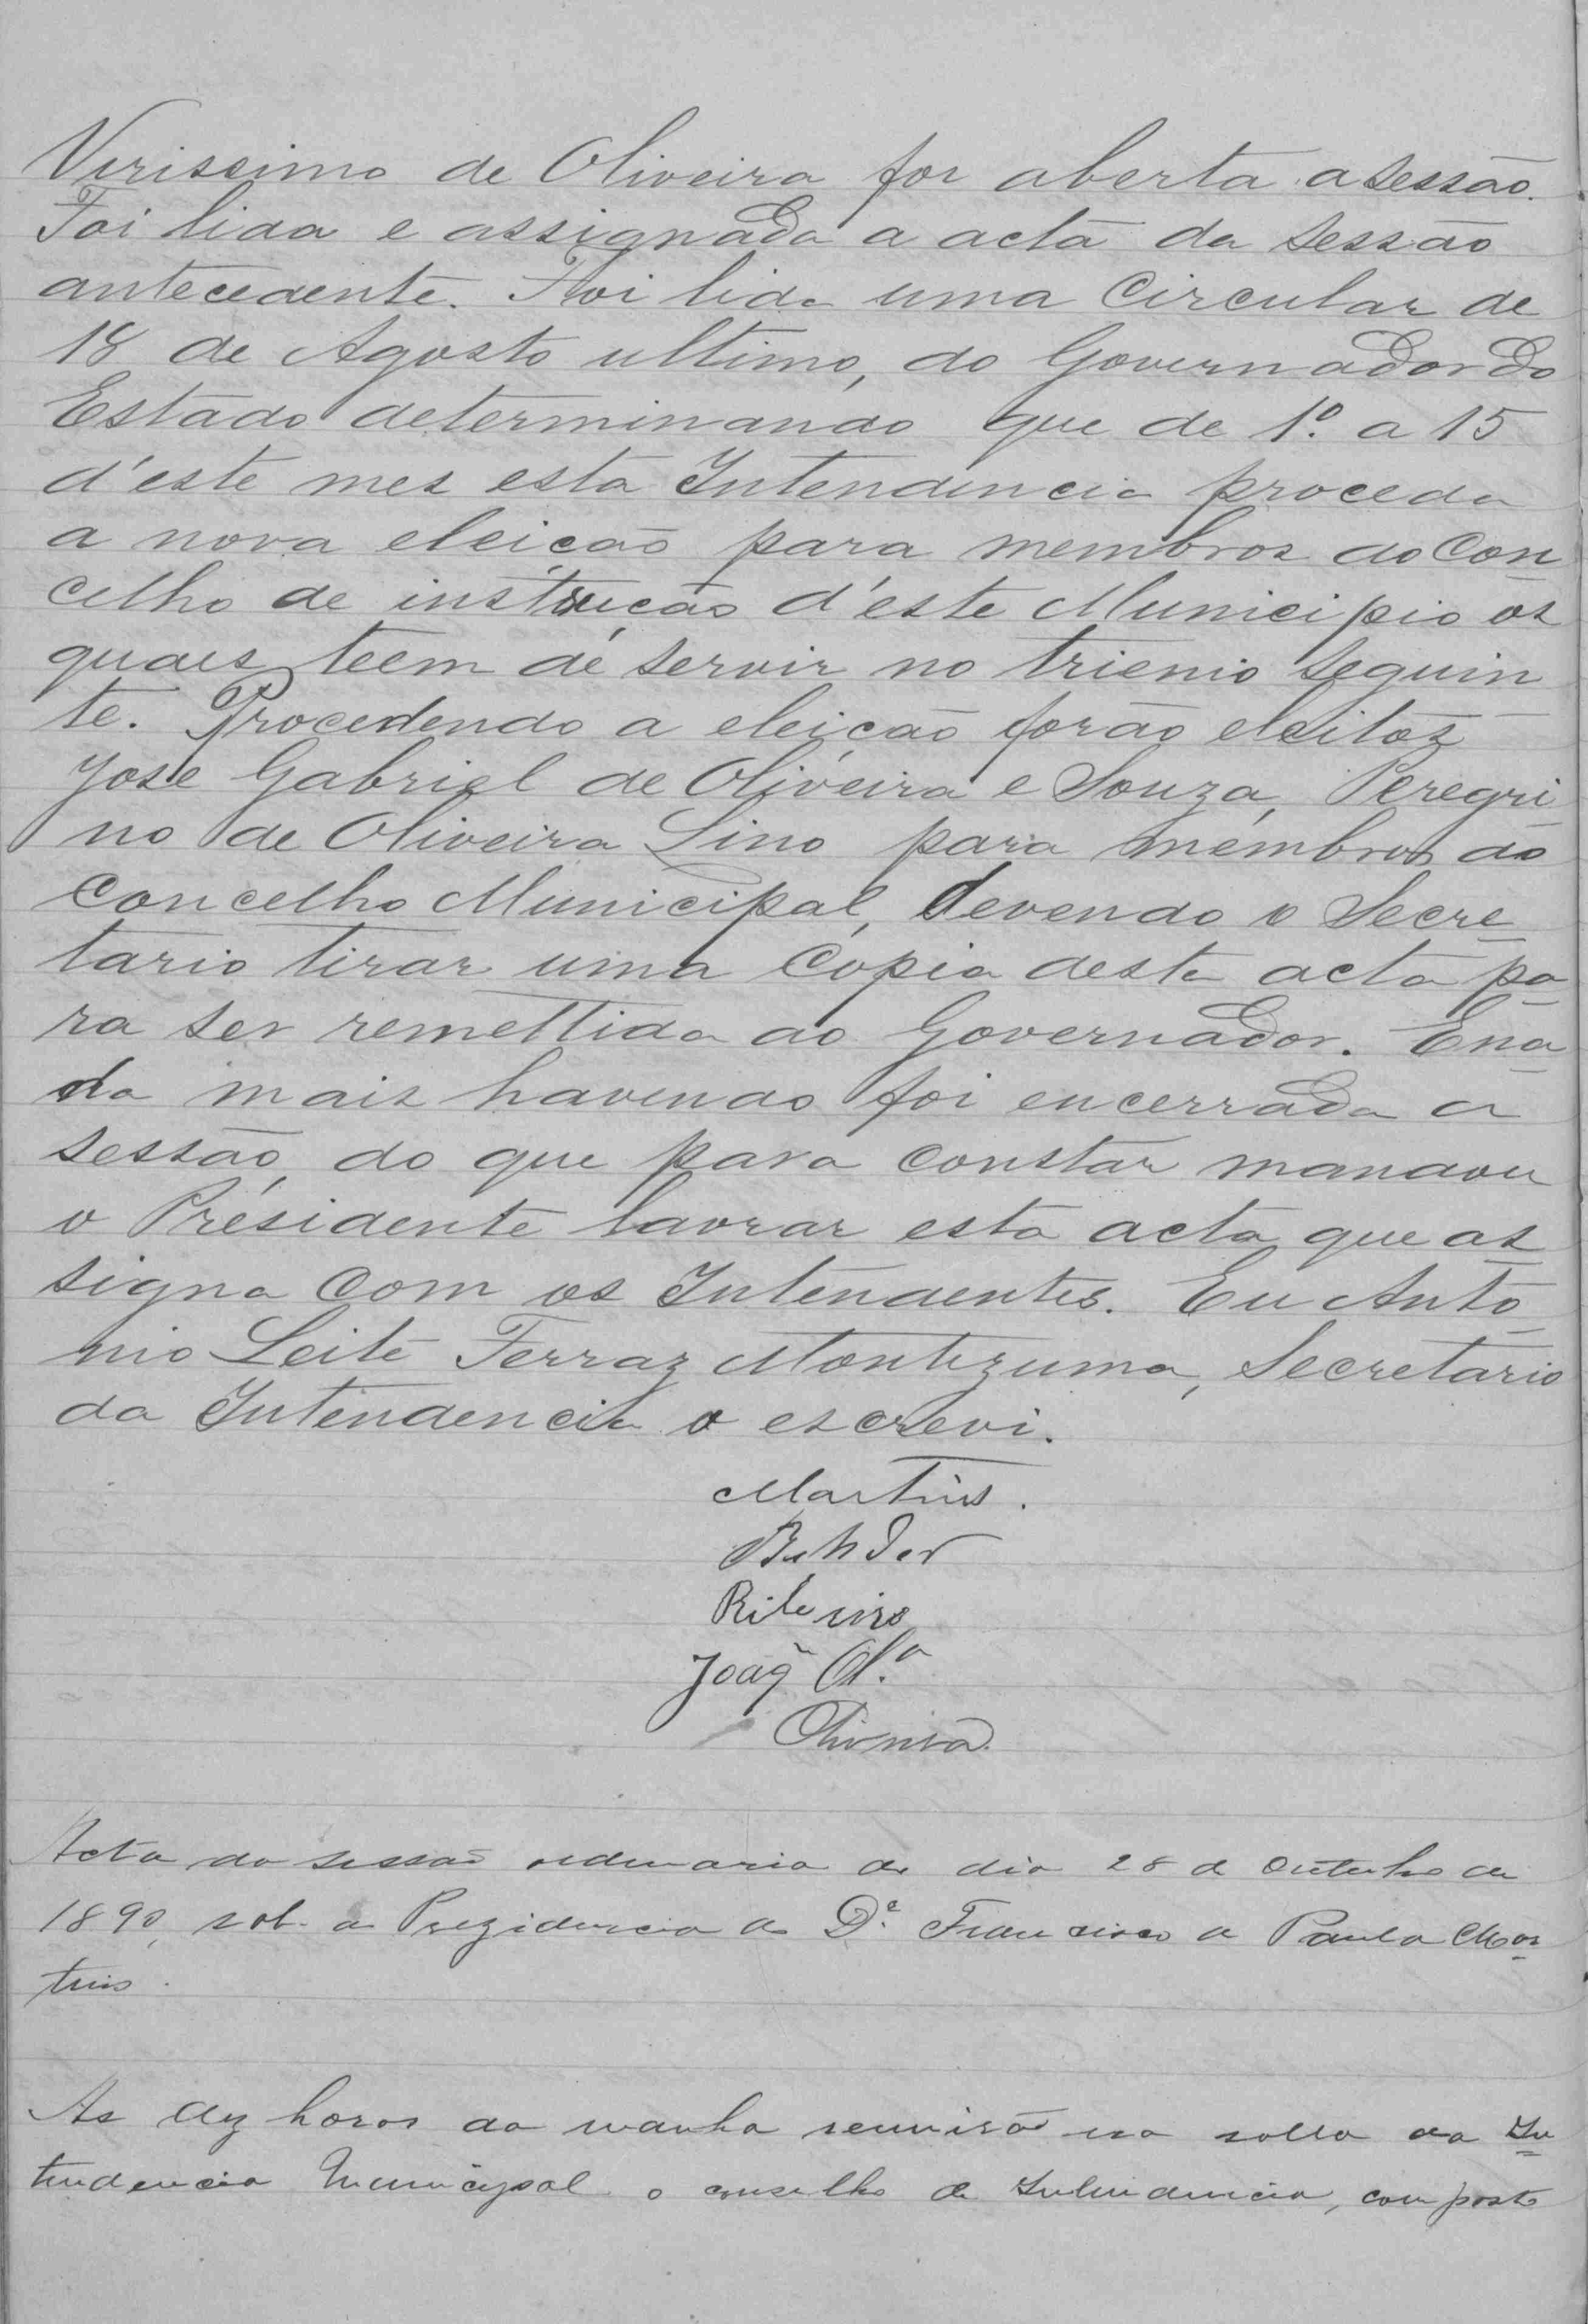 Virissimo de Oliveira foi aberta a sessão.
Foi lida e assignada a acta da sessão
antecedente. Foi lida uma Circular de
18 de Agosto ultimo, do Governador do
Estado determinando que de 1º. a 15
d'este mes esta Intendencia proceda
a nova eleição para membros do Con
celho de instrucção d'este Municipio os
quaes teem de servir no trienio seguin
te. Procedendo a eleição forão eleitos
José Gabriel de Oliveira e Souza, Peregri
no de Oliveira Lino para membros do
Concelho Municipal, devendo o Secre
tario tirar uma copia desta acta pa
ra ser remettida ao Governador. E na
da mais havendo foi encerrada a
sessão, do que para constar mandou
o Presidente lavrar esta acta que as
signa com os Intendentes. Eu Anto
nio Leite Ferraz Montezuma, Secretario
da Intendencia o escrevi.
Martins.
Ribeiro
Joaq̃ Ol.ª
Oliveira
Acta da sessão ordenaria do dia 28 de Outubro de
1890, sob a Prezidencia do Dr. Francisco de Paula Mar
tins.
As dez horas da manha reunirão na salla da In
tendencia Municipal o conselho de Intendencia, composto